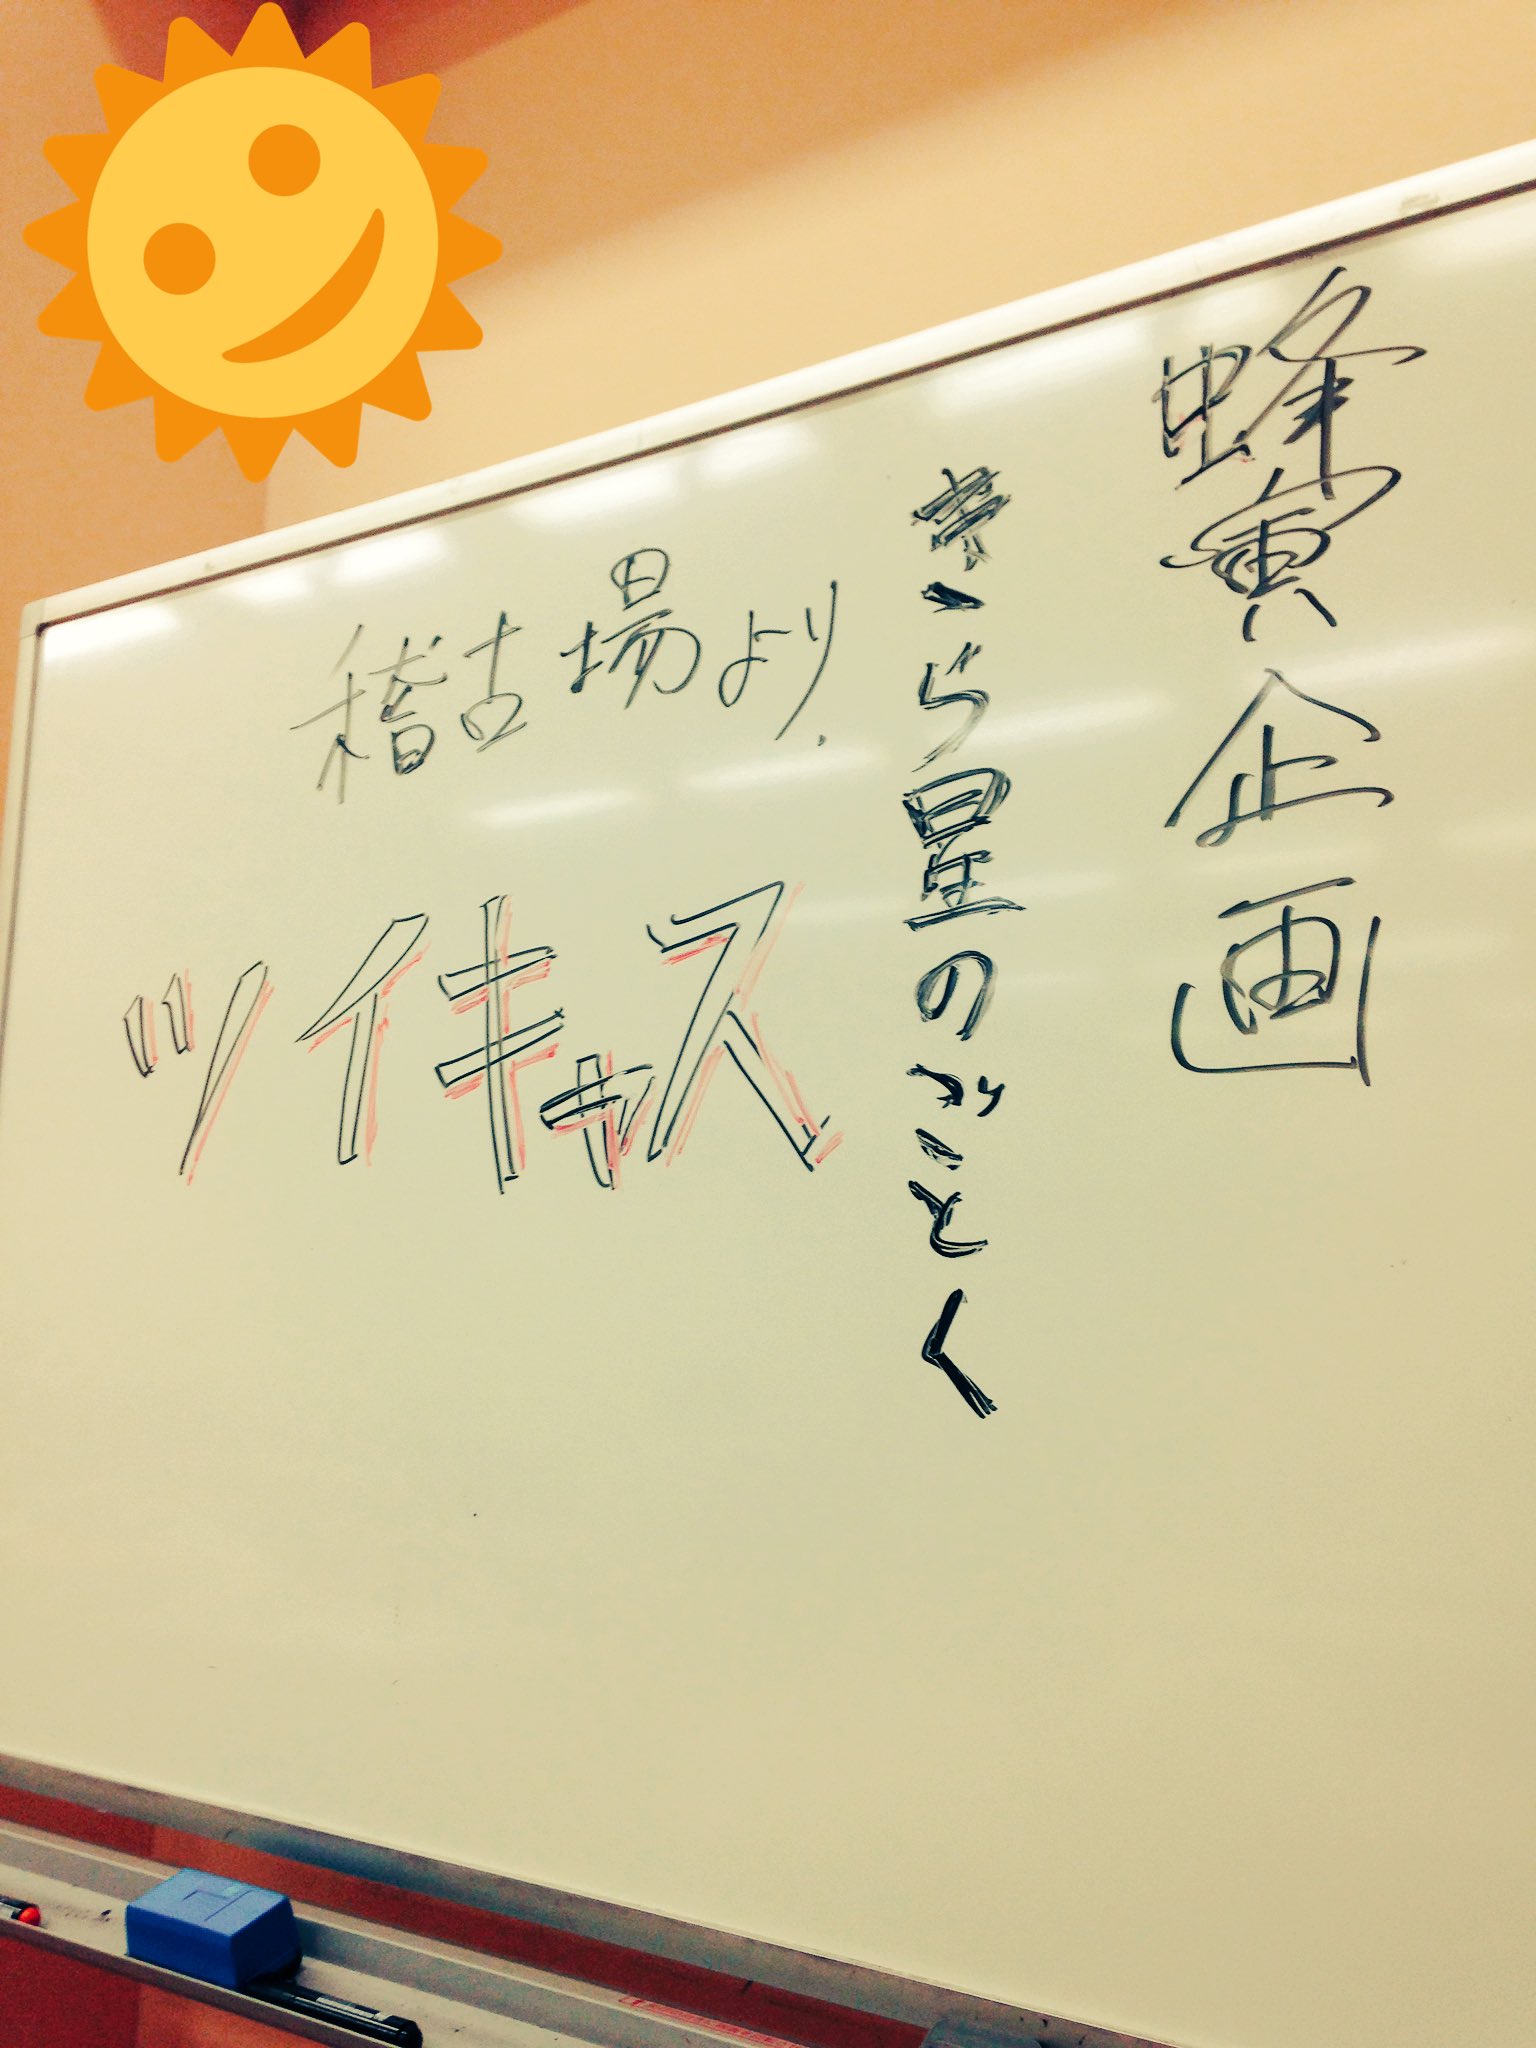 蜂寅企画
きら星のごとく
稽古場より.
ツイキャス